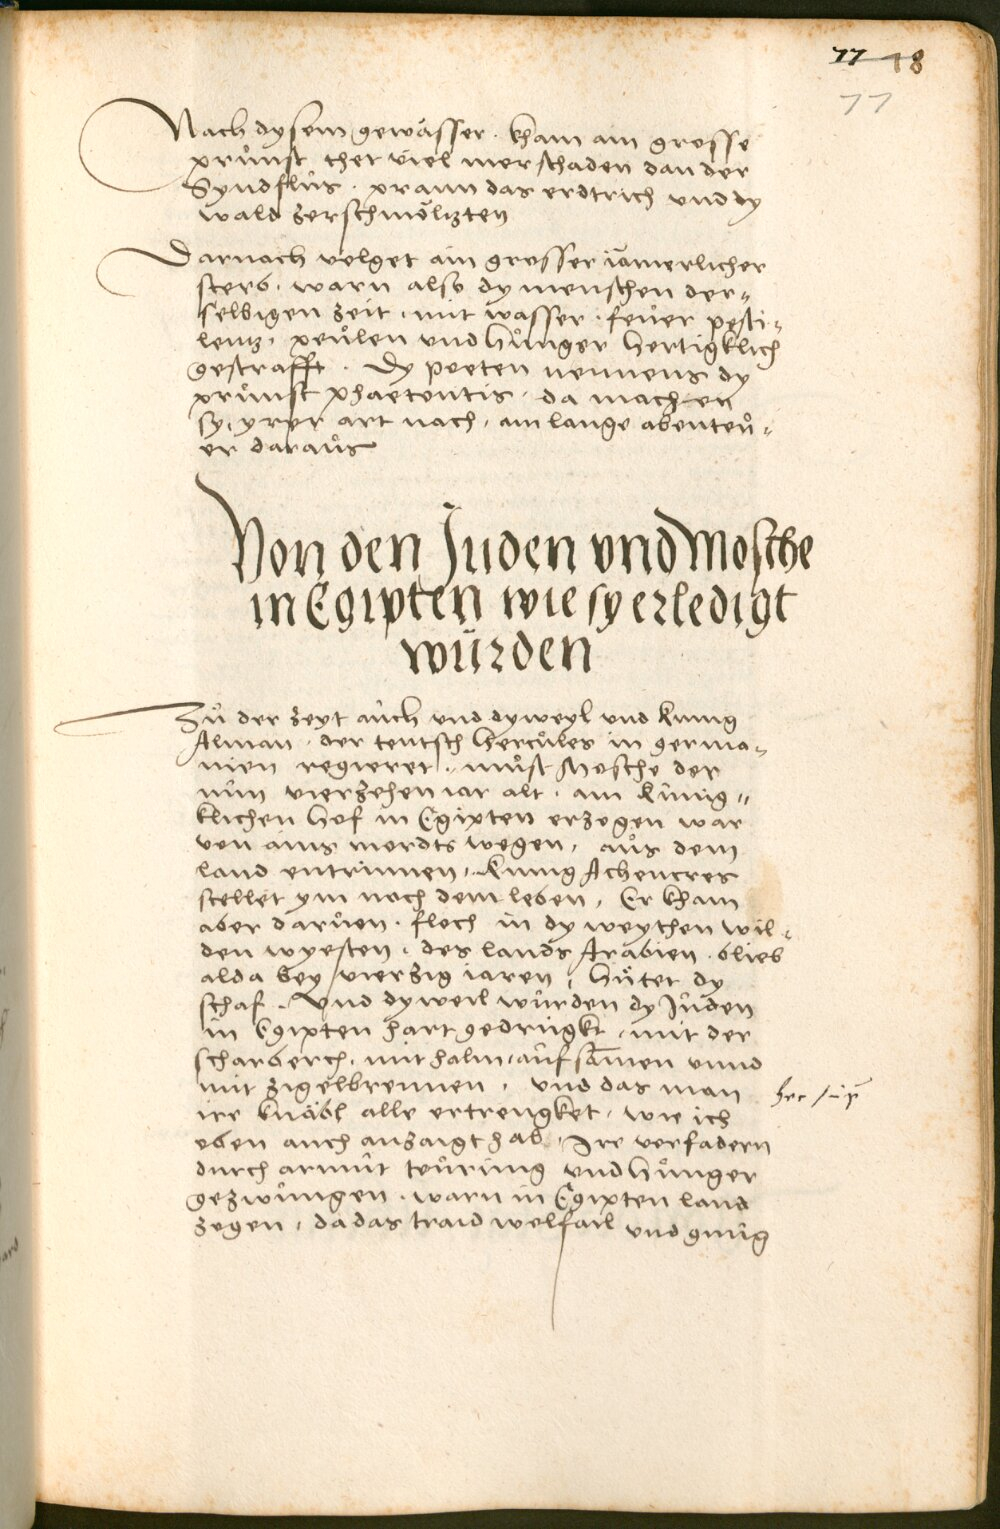 77 18
77
Nach dysem gewässer · kham ain grosse
průnst thet viel mer schaden dan der
Syndflůs · prann das erdtrich und dy
wäld zerschmöltzten
Darnach volget ain grosser iämerlicher
sterb · warn also dy menschen der-
selbigen zeit · mit wasser · feůer pesti-
lentz · peůlen und hůnger hertigklich
gestrafft · Dy poeten nennens dy
průnst phaetontis · da machen
sy, yrer art nach, ain lange abenteů-
er daraůs
Von den Juden und Mosche
in Egipten wie sy erledigt
würden
Zů der zeyt aůch und dyweyl und kunig
Alman · der teutsch hercůles in germa-
nien regieret · můst Mosche der
nůn vierzehen iar alt · am kůnig-
klichen hof in Egipten erzogen war
von ains mordts wegen, aůs dem
land entrinnen, Kunig Achencres
stellet ym noch dem leben, Er kham
aber daruon · floch in dy weythen wil-
den wyesten · des lands Arabien · blieb
alda bey vierzig iaren, hůtet dy
schaf · Vnd dyweil wůrden dy Jůden
in Egipten hart gedrůgkt · mit der
scharberch · mit halm aůfsamen unnd
mit zigelbrennen, und das man
ire knäbl alle ertrengket · wie ich
oben auch anzaigt hab · Ire vorfadern
durch armůt teůrůng und hůnger
gezwůngen · warn in Egipten land
zogen, da das traid wolfail und gnůg